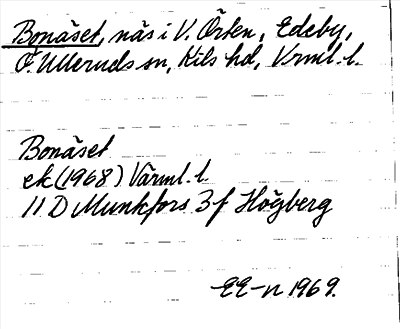 Bonäset, näs i V. Örten, Edeby,
Ö. Ulleruds sn, Kils hd, Vrml. l.
Bonäset
ek (1968) Värml. l.
11 D Munkfors 3 f Högberg
EE-n 1969.